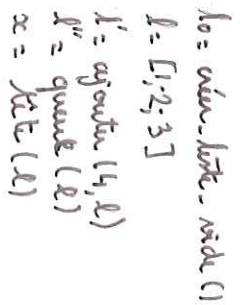 l0 = créer_liste_vide ()
l = [1; 2; 3]
l' = ajouter (4, l)
l'' = queue (l)
x = tête (l)